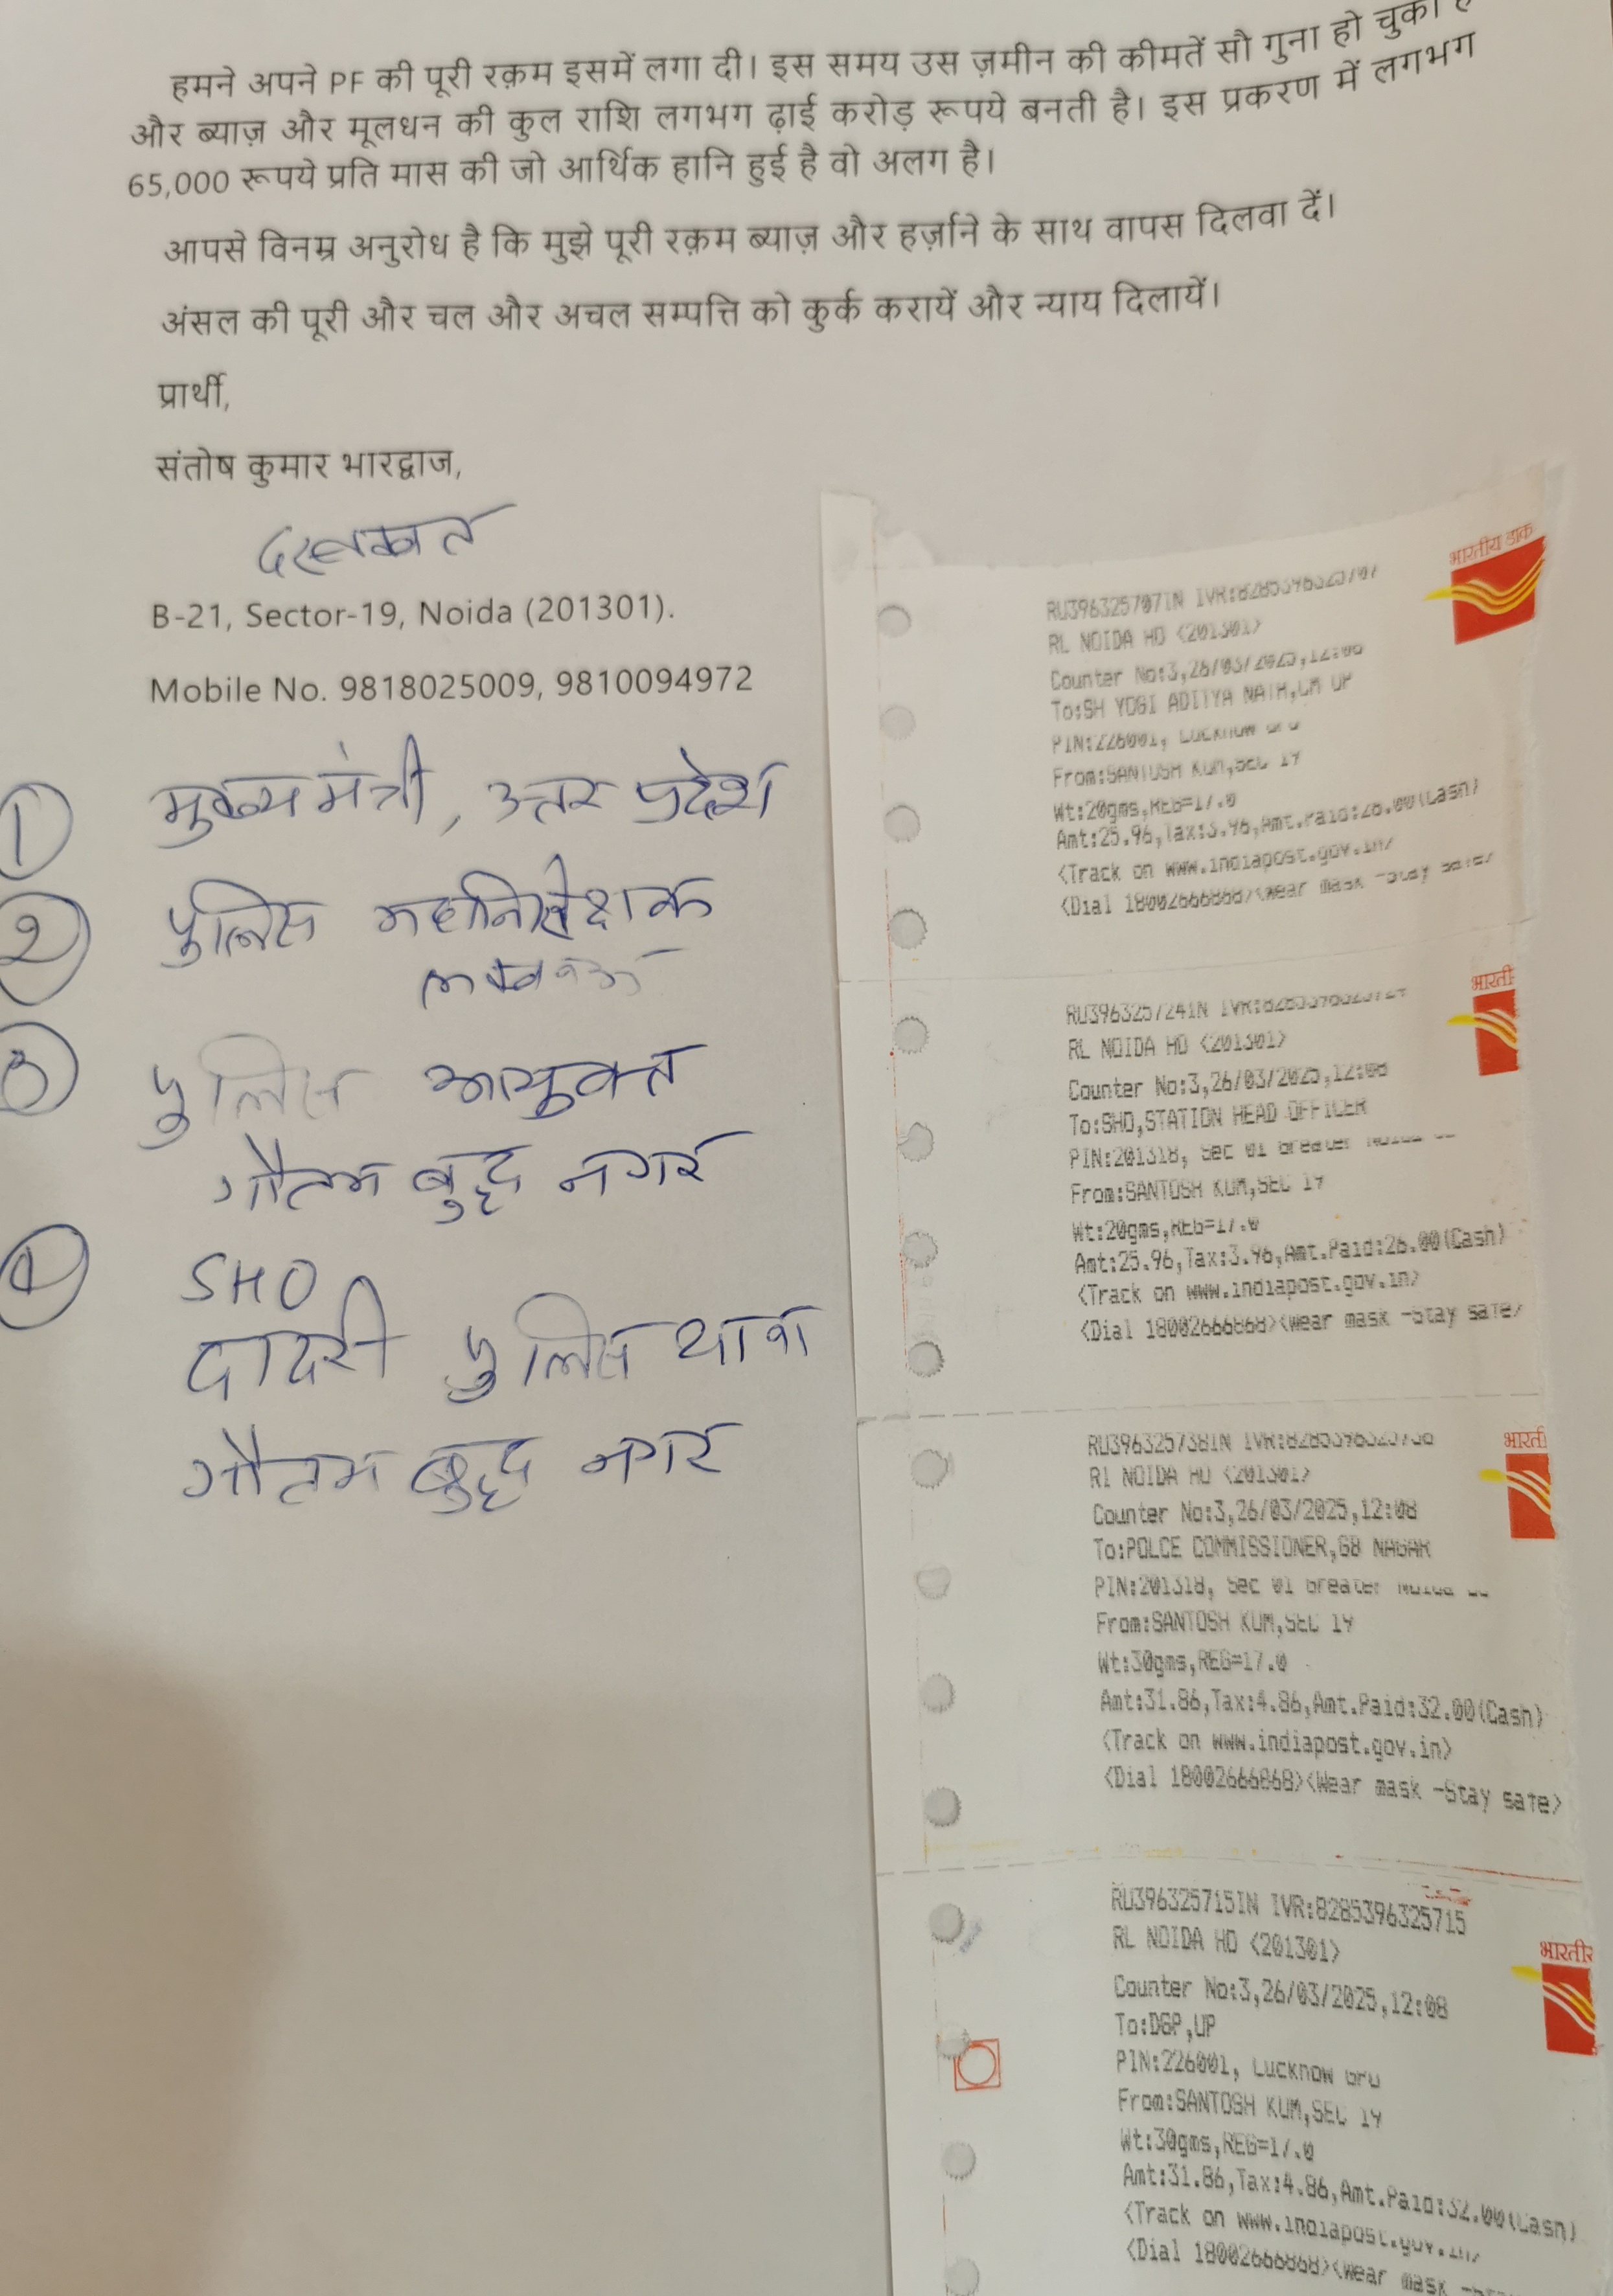 हमने अपने PF की पूरी रक़म इसमें लगा दी। इस समय उस ज़मीन की कीमतें सौ गुना हो चुकी
और ब्याज़ और मूलधन की कुल राशि लगभग ढ़ाई करोड़ रूपये बनती है। इस प्रकरण में लगभग
65,000 रूपये प्रति मास की जो आर्थिक हानि हुई है वो अलग है।
आपसे विनम्र अनुरोध है कि मुझे पूरी रक़म ब्याज़ और हर्ज़ाने के साथ वापस दिलवा दें।
अंसल की पूरी और चल और अचल सम्पत्ति को कुर्क करायें और न्याय दिलायें।
प्रार्थी,
संतोष कुमार भारद्वाज,
दस्तखत
B-21, Sector-19, Noida (201301).
Mobile No. 9818025009, 9810094972
1 मुख्य मंत्री, उत्तर प्रदेश
2 पुलिस महानिरीक्षक
लखनऊ
3 पुलिस आयुक्त
गौतम बुद्ध नगर
4 SHO
दादरी पुलिस थाना
गौतम बुद्ध नगर
भारतीय डाक
RU396325707IN IVR:8285396325707
RL NOIDA HO <201301>
Counter No:3,26/03/2025,12:08
To:SH YOGI ADITYA NATH,CM UP
PIN:226001, Lucknow
From:SANTOSH KUM,SEC 19
Wt:20gms,REG=17.0
Amt:25.96,Tax:3.96,Amt.Paid:26.00(Cash)
<Track on www.indiapost.gov.in>
<Dial 18002666868><Wear mask -Stay safe>
भारती
RU396325724IN IVR:8285396325724
RL NOIDA HO <201301>
Counter No:3,26/03/2025,12:08
To:SHO,STATION HEAD OFFICER
PIN:201318, Sec 01 Greater Noida
From:SANTOSH KUM,SEC 19
Wt:20gms,REG=17.0
Amt:25.96,Tax:3.96,Amt.Paid:26.00(Cash)
<Track on www.indiapost.gov.in>
<Dial 18002666868><Wear mask -Stay safe>
भारती
RU396325738IN IVR:8285396325738
RL NOIDA HO <201301>
Counter No:3,26/03/2025,12:08
To:POLCE COMMISSIONER,GB NAGAR
PIN:201318, Sec 01 Greater Noida
From:SANTOSH KUM,SEC 19
Wt:30gms,REG=17.0
Amt:31.86,Tax:4.86,Amt.Paid:32.00(Cash)
<Track on www.indiapost.gov.in>
<Dial 18002666868><Wear mask -Stay safe>
भारतीर
RU396325715IN IVR:8285396325715
RL NOIDA HO <201301>
Counter No:3,26/03/2025,12:08
To:DGP,UP
PIN:226001, Lucknow
From:SANTOSH KUM,SEC 19
Wt:30gms,REG=17.0
Amt:31.86,Tax:4.86,Amt.Paid:32.00(Cash)
<Track on www.indiapost.gov.in>
<Dial 18002666868><Wear mask